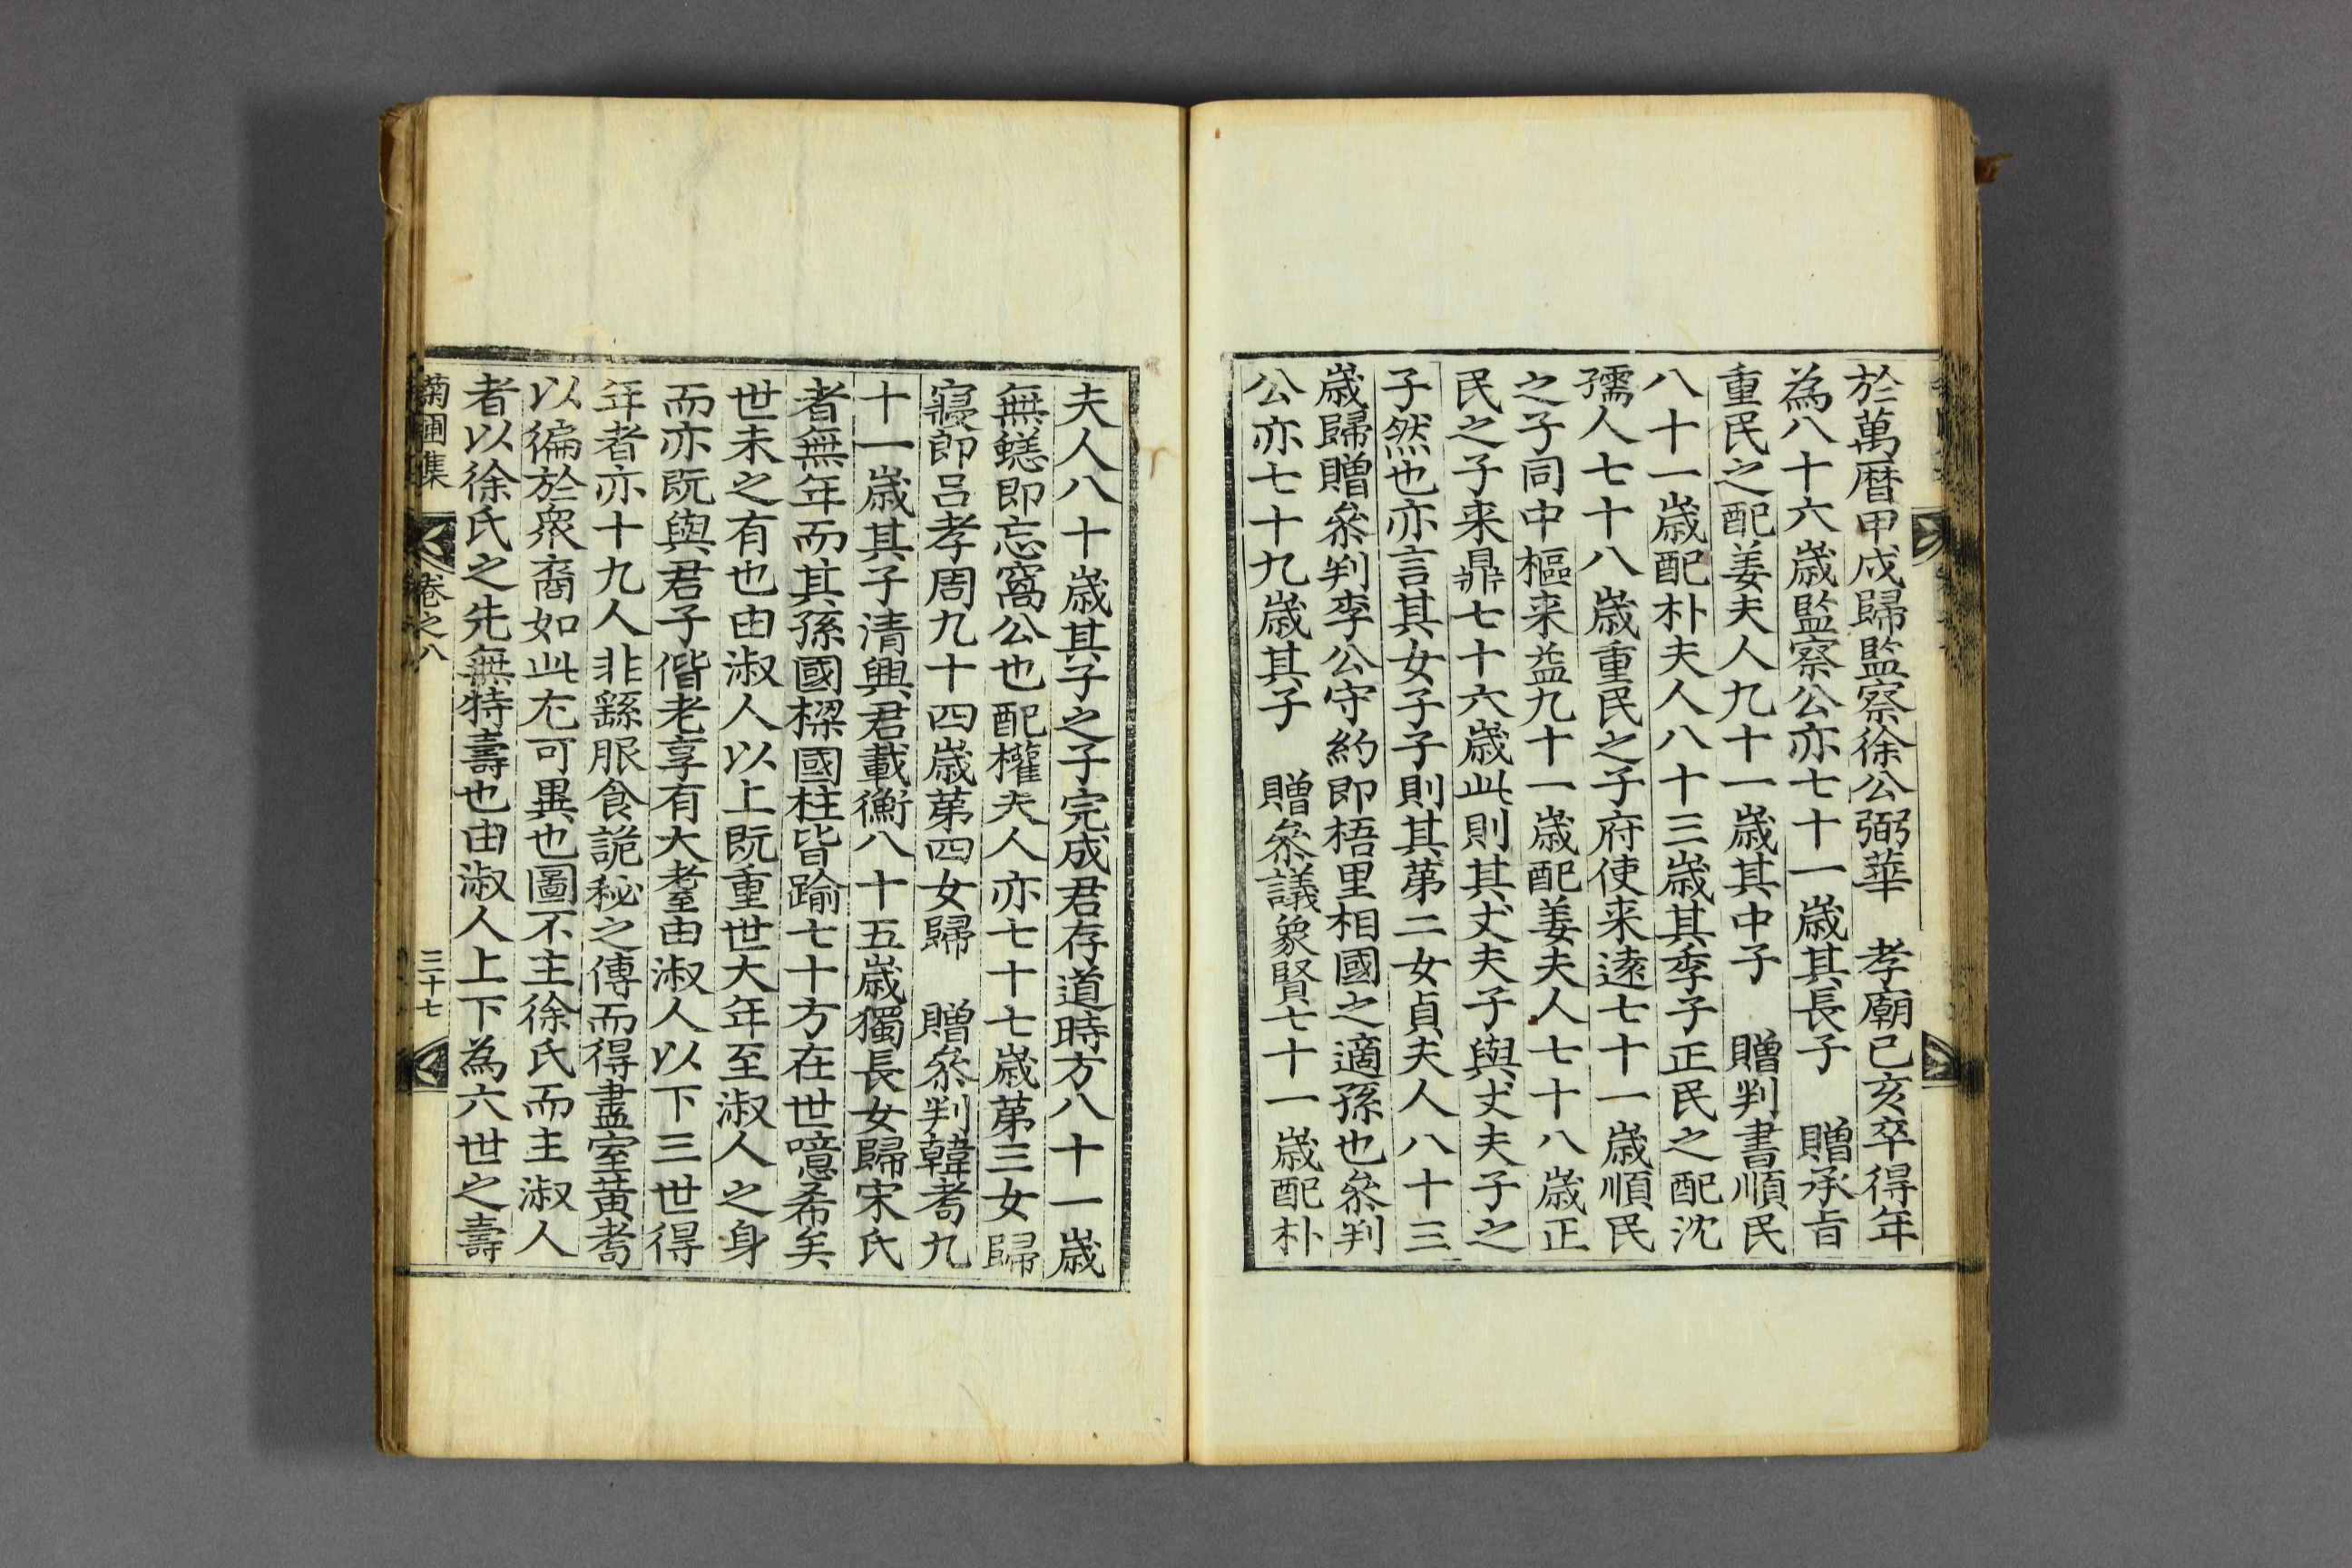 於萬曆甲戌歸監察徐公弼華　孝廟己亥卒得年
為八十六歲監察公亦七十一歲其長子　贈承旨
重民之配姜夫人九十一歲其中子　贈判書順民
八十一歲配朴夫人八十三歲其季子正民之配沈
孺人七十八歲重民之子府使来遠七十一歲順民
之子同中樞来益九十一歲配姜夫人七十八歲正
民之子来鼎七十六歲此則其丈夫子與丈夫子之
子然也亦言其女子子則其苐二女貞夫人八十三
歲歸贈叅判李公守約即梧里相國之適孫也叅判
公亦七十九歲其子　贈叅議象賢七十一歲配朴
夫人八十歲其子之子完成君存道時方八十一歲
無蟋即忘窩公也配權夫人亦七十七歲苐三女歸
寢郎呂孝周九十四歲苐四女歸　贈叅判韓耇九
十一歲其子清興君載衡八十五歲獨長女歸宋氏
者無年而其孫國樑國柱皆踰七十方在世噫希矣
世未之有也由淑人以上既重世大年至淑人之身
而亦既與君子偕老享有大耋由淑人以下三世得
年者亦十九人非繇服食詭秘之傳而得盡室黃耇
以徧於衆裔如此尤可異也圖不主徐氏而主淑人
者以徐氏之先無特壽也由淑人上下為六世之壽
菊圃集　卷之八　三十七